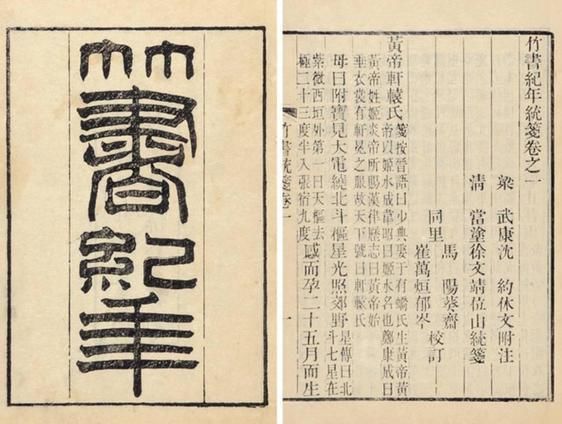 竹書紀年
竹書紀年統箋卷之一
梁 武康沈 約休文附注
清 當塗徐文靖位山統箋
馬 陽葵齋
同里 校訂
崔萬烜郁岑
黃帝軒轅氏
箋按晉語曰少典娶于有蟜氏生黃帝黃
帝以姬水成韋昭曰姬水名也鄭康成曰
黃帝姓姬炎帝所賜漢律歷志曰黃帝始
垂衣裳有軒冕之服故天下號曰軒轅氏
母曰附寶見大電繞北斗樞星光照郊野
星傳曰北斗七星在
紫微西垣外第一曰天樞去
極二十三度半入張宿九度
感而孕二十五月而生
竹書統箋卷一
一